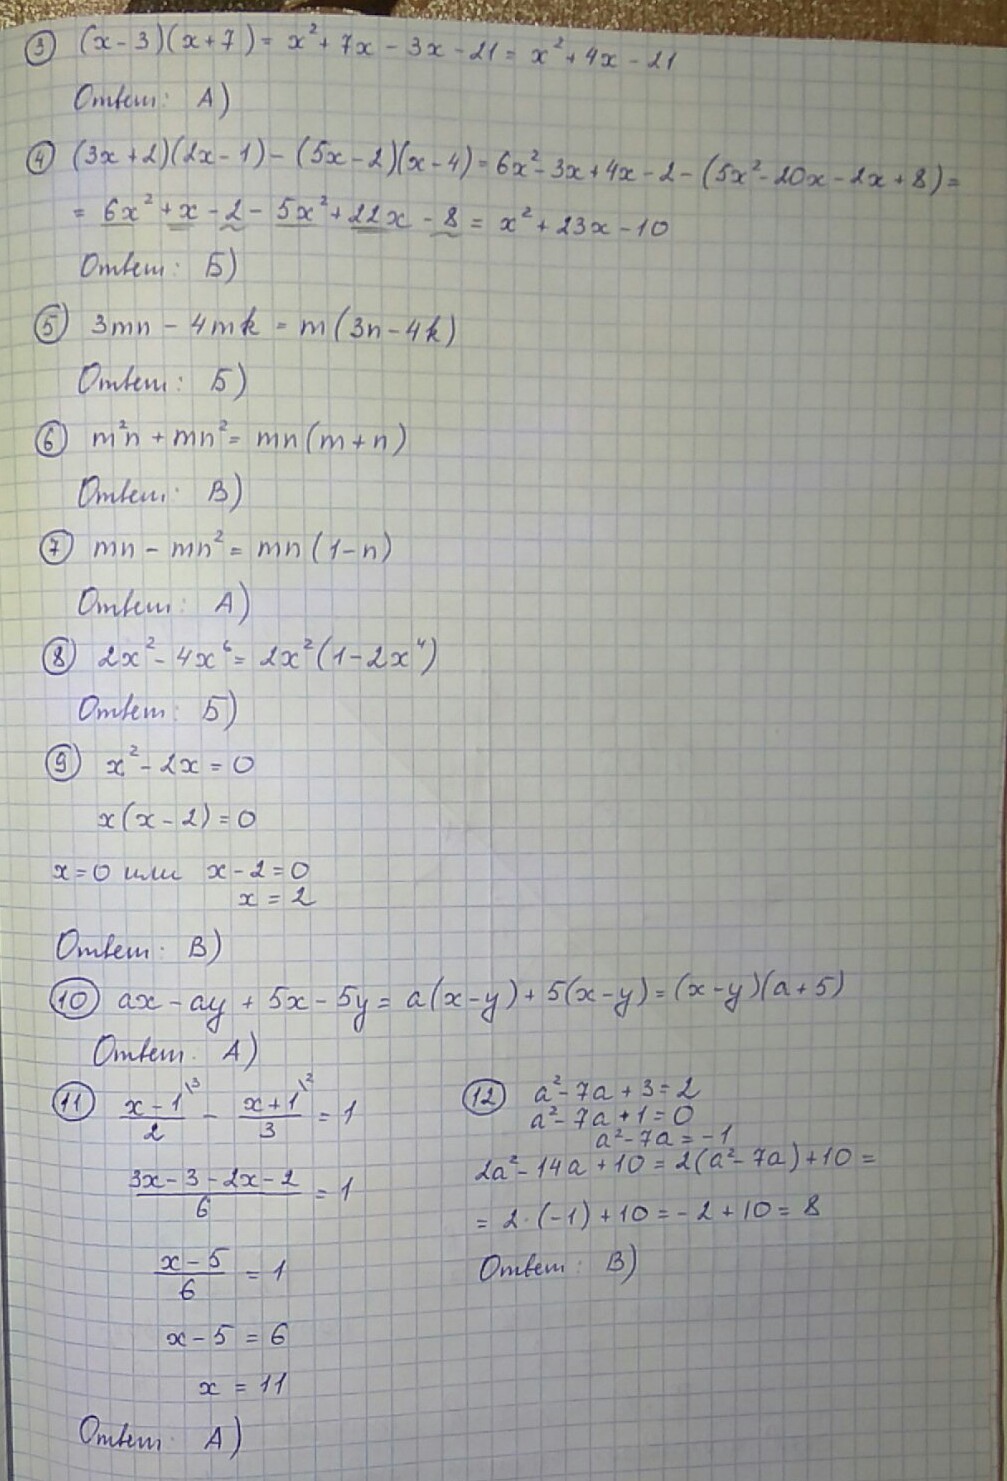 ③ (x-3)(x+7) = x² + 7x - 3x - 21 = x² + 4x - 21
Ответ: А)
④ (3x+2)(2x-1) - (5x-2)(x-4) = 6x² - 3x + 4x - 2 - (5x² - 20x - 2x + 8) =
= 6x² + x - 2 - 5x² + 22x - 8 = x² + 23x - 10
Ответ: Б)
⑤ 3mn - 4mk = m(3n - 4k)
Ответ: Б)
⑥ m²n + mn² = mn(m+n)
Ответ: В)
⑦ mn - mn² = mn(1-n)
Ответ: А)
⑧ 2x² - 4x⁶ = 2x²(1-2x⁴)
Ответ: Б)
⑨ x² - 2x = 0
x(x-2) = 0
x=0 или x-2=0
x = 2
Ответ: В)
⑩ ax - ay + 5x - 5y = a(x-y) + 5(x-y) = (x-y)(a+5)
Ответ: А)
⑪ (x-1)/2 \3 - (x+1)/3 \2 = 1
(3x-3-2x-2)/6 = 1
(x-5)/6 = 1
x-5 = 6
x = 11
Ответ: А)
⑫ a² - 7a + 3 = 2
a² - 7a + 1 = 0
a² - 7a = -1
2a² - 14a + 10 = 2(a² - 7a) + 10 =
= 2·(-1) + 10 = -2 + 10 = 8
Ответ: В)